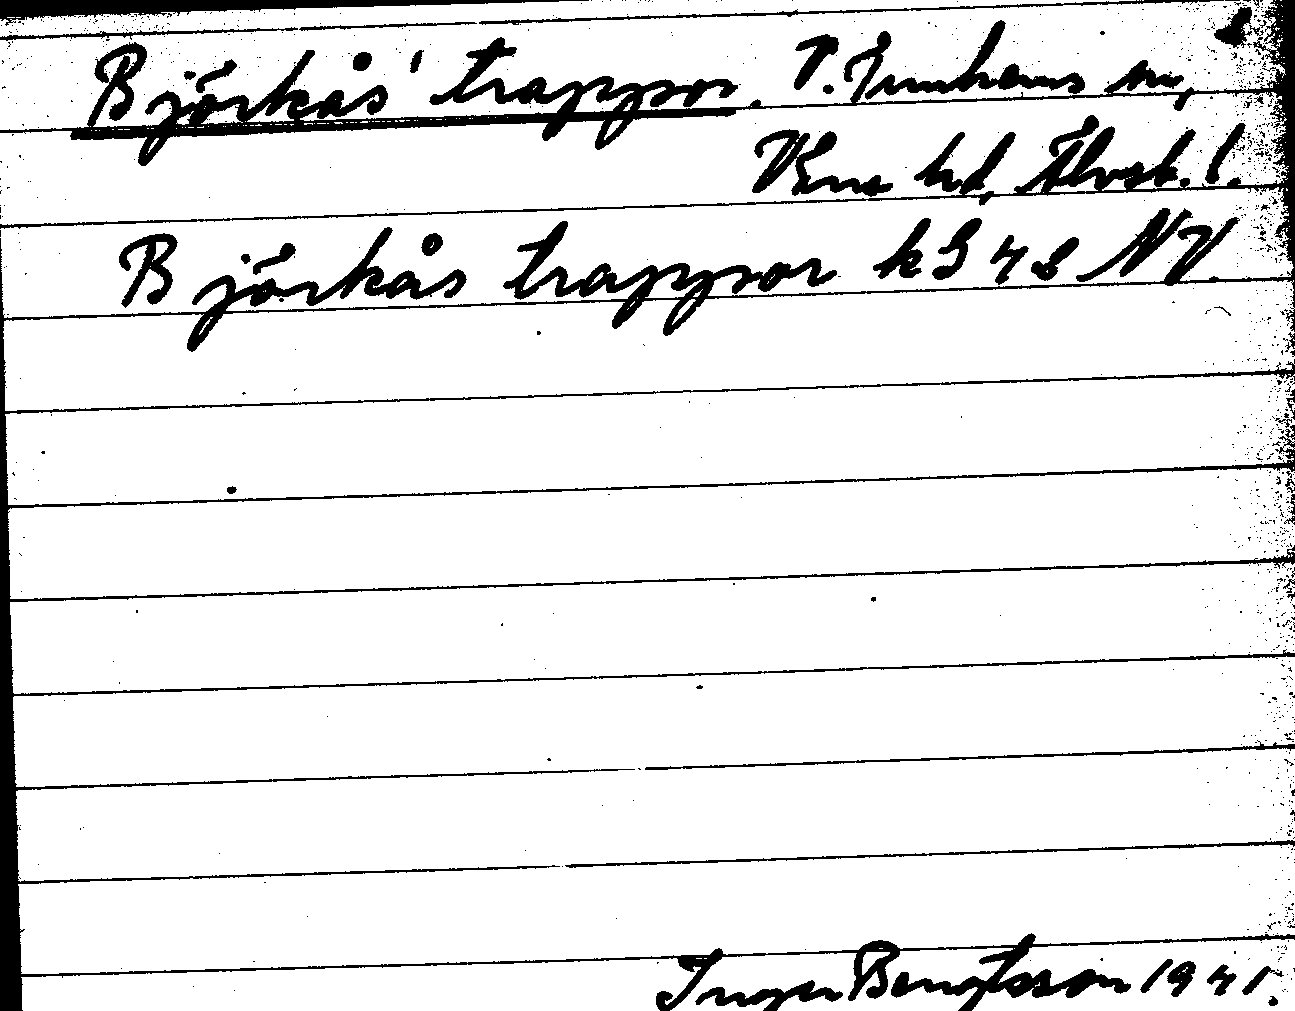 Björkås' trappor. V. Tunhems sn,
Väne hd, Älvsb. l.
Björkås trappor k 3 4 8 NV.
Inger Bengtsson 1941.